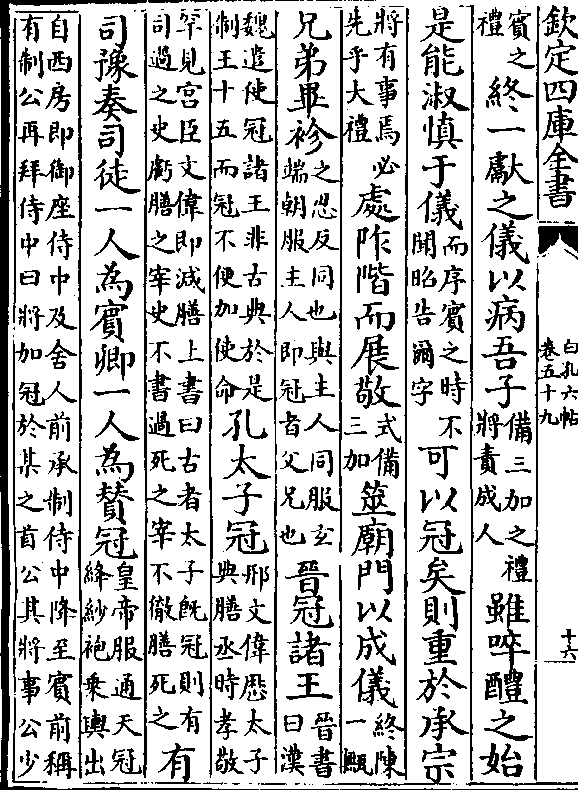 欽定四庫全書
白孔六帖
卷五十九
十六
賓之
禮
終一獻之儀以病吾子
備三加之禮
將責成人
雖啐醴之始
是能淑慎于儀
而序賓之時
聞昭告爾字
不可以冠矣則重於承宗
將有事焉
先乎大禮
必處阼階而展敬
式備
三加
筮廟門以成儀
終陳
一甒
兄弟畢袗
之忍反同也與主人同服玄
端朝服主人即冠者父兄也
晉冠諸王
晉書
曰漢
魏遣使冠諸王非古典於是
制王十五而冠不便加使命
孔太子冠
邢文偉歷太子
典膳丞時孝敬
罕見宮臣文偉即減膳上書曰古者太子既冠則有
司過之史虧膳之宰史不書過死之宰不徹膳死之
有
司豫奏司徒一人為賓卿一人為贊冠
皇帝服通天冠
絳紗袍乘輿出
自西房即御座侍中及舍人前承制侍中降至賓前稱
有制公再拜侍中曰將加冠於某之首公其將事公少